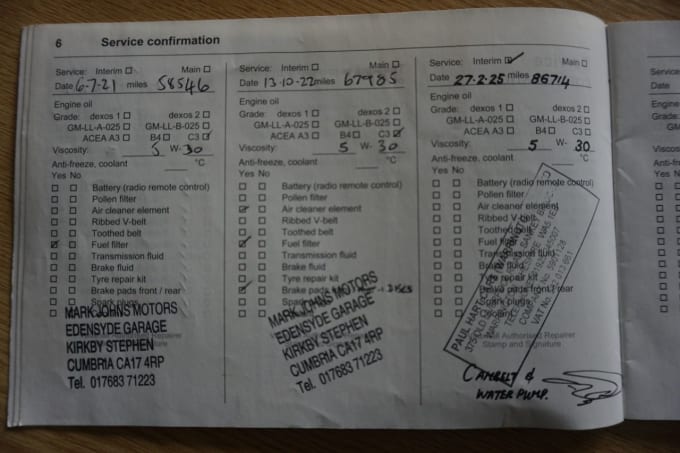 6 Service confirmation
Service: Interim ☐ Main ☐
Date 6-7-21 miles 58546
Engine oil
Grade: dexos 1 ☐ dexos 2 ☐
GM-LL-A-025 ☐ GM-LL-B-025 ☐
ACEA A3 ☐ B4 ☐ C3 ☑
Viscosity: 5 W- 30
Anti-freeze, coolant °C
Yes No
☐ ☐ Battery (radio remote control)
☐ ☐ Pollen filter
☐ ☐ Air cleaner element
☐ ☐ Ribbed V-belt
☐ ☐ Toothed belt
☑ ☐ Fuel filter
☐ ☐ Transmission fluid
☐ ☐ Brake fluid
☐ ☐ Tyre repair kit
☐ ☐ Brake pads front / rear
☐ ☐ Spark plugs
MARK JOHNS MOTORS
EDENSYDE GARAGE
KIRKBY STEPHEN
CUMBRIA CA17 4RP
Tel. 017683 71223
Service: Interim ☐ Main ☐
Date 13-10-22 miles 67985
Engine oil
Grade: dexos 1 ☐ dexos 2 ☐
GM-LL-A-025 ☐ GM-LL-B-025 ☐
ACEA A3 ☐ B4 ☐ C3 ☑
Viscosity: 5 W- 30
Anti-freeze, coolant °C
Yes No
☐ ☐ Battery (radio remote control)
☐ ☐ Pollen filter
☑ ☐ Air cleaner element
☐ ☐ Ribbed V-belt
☐ ☐ Toothed belt
☑ ☐ Fuel filter
☐ ☐ Transmission fluid
☐ ☐ Brake fluid
☐ ☐ Tyre repair kit
☑ ☐ Brake pads
MARK JOHNS MOTORS
EDENSYDE GARAGE
KIRKBY STEPHEN
CUMBRIA CA17 4RP
Tel. 017683 71223
Service: Interim ☑ Main ☐
Date 27-2-25 miles 86714
Engine oil
Grade: dexos 1 ☐ dexos 2 ☐
GM-LL-A-025 ☐ GM-LL-B-025 ☐
ACEA A3 ☐ B4 ☐ C3 ☐
Viscosity: 5 W- 30
Anti-freeze, coolant °C
Yes No
☐ ☐ Battery (radio remote control)
☐ ☐ Pollen filter
☐ ☐ Air cleaner element
☐ ☐ Ribbed V-belt
☐ ☐ Toothed belt
☐ ☐ Fuel filter
☐ ☐ Transmission fluid
☐ ☐ Brake fluid
☐ ☐ Tyre repair kit
☐ ☐ Brake pads front / rear
☐ ☐ Spark plugs
Authorised Repairer
Stamp and Signature
CAMBELT &
WATER PUMP.